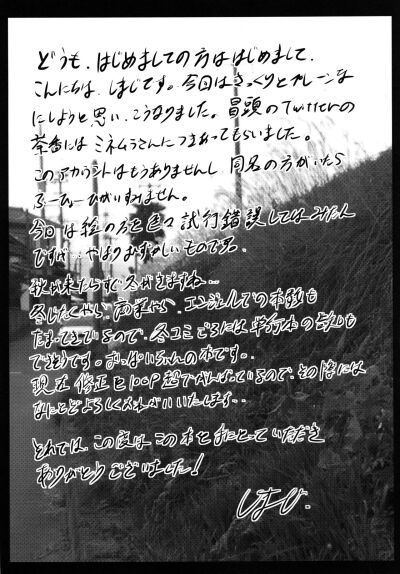 どうも、はじめましての方ははじめまして、
こんにちは、しまじです。今回はさっくりとプレーンな
にしようと思い、こうなりました。冒頭のTwitterの
茶番にはミネムラさんにつきあってもらいました。
このアカウントはもうありませんし、同名の方がいたら
すみません。
今回は絵の方を色々試行錯誤してはみたん
ですが…やはりむずかしいものです。
秋が来たらすぐ冬がきますね…
冬じたくやら、商業やら、
たまってきているので、冬コミごろには単行本の告知も
できそうです。おっぱい の本です。
現在修正と100P超でがんばっているので、その際には
なにとぞよろしくおねがいいたします…
それでは、この度はこの本を手にとっていただき
ありがとうございました!